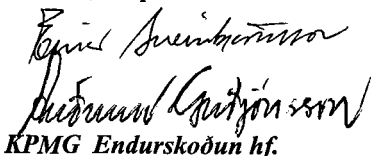 Einar Sveinbjörnsson
Guðmund Guðjónsson
KPMG Endurskoðun hf.